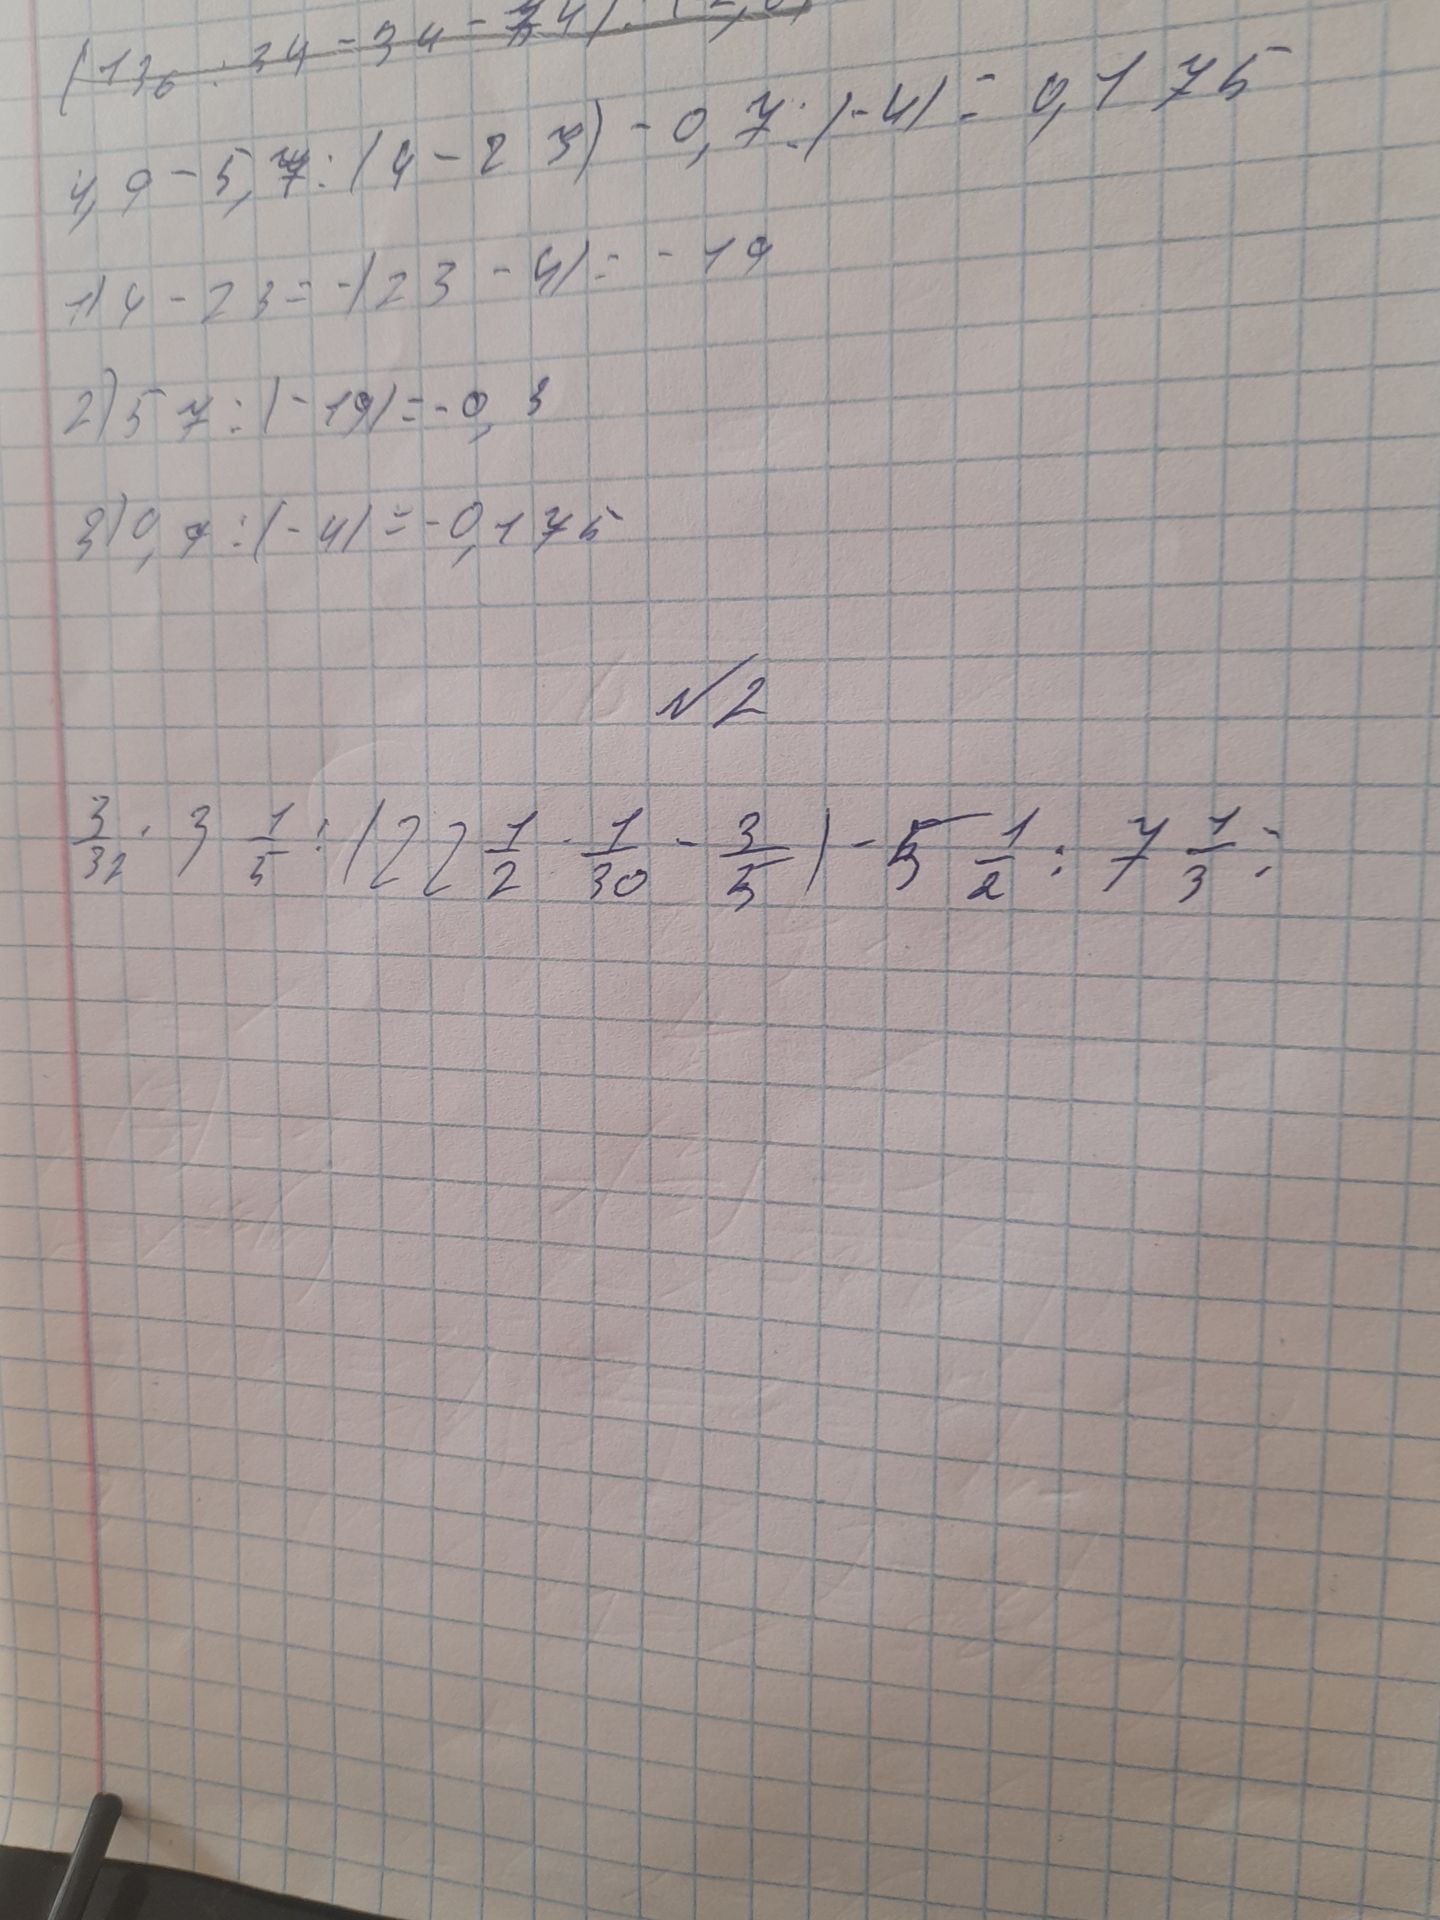 4,9 - 5,7 : (4 - 23) - 0,7 : (-4) = 0,175
1) 4 - 23 = -(23 - 4) = -19
2) 57 : (-19) = -0,3
3) 0,7 : (-4) = -0,175
№2
3/32 · 3 1/5 : (22 1/2 · 1/30 - 3/5) - 5 1/2 : 7 1/3 =